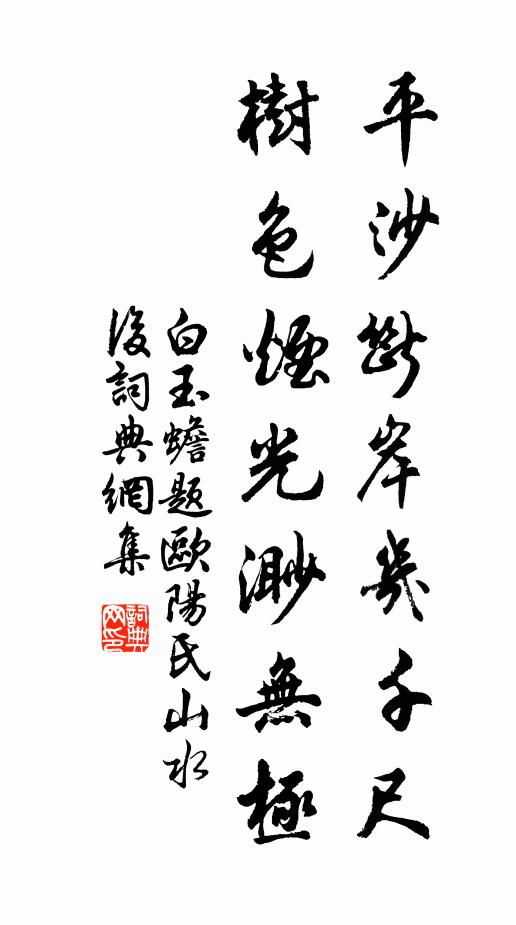 平沙斷岸幾千尺
樹色煙光渺無極
白玉蟾題歐陽氏山水
後詞典網集
詞典網印